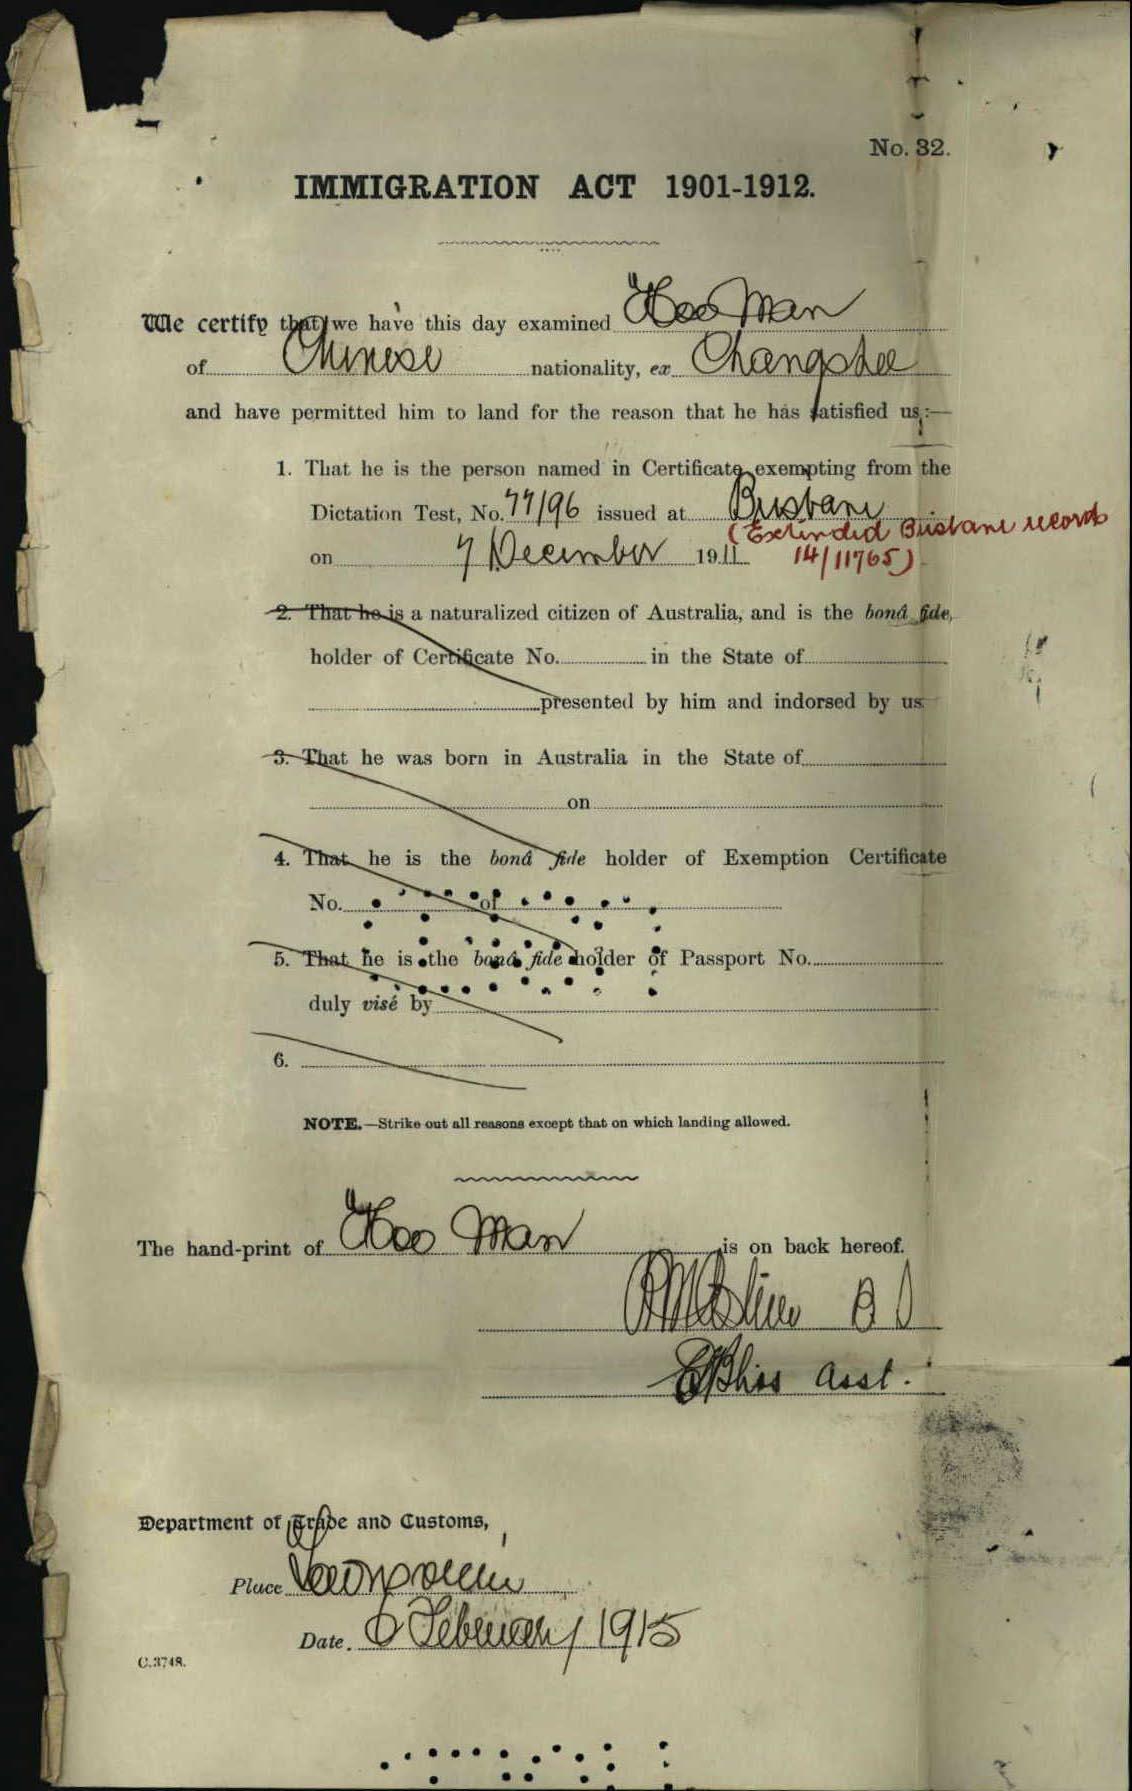 No. 32.
IMMIGRATION ACT 1901-1912.
We certify that we have this day examined Hoo Man
of Chinese nationality, ex Changsha
and have permitted him to land for the reason that he has satisfied us:—
1. That he is the person named in Certificate exempting from the
Dictation Test, No. 77/96 issued at Brisbane
(Extended Brisbane records
on 7 December 1911 14/11765)
2. That he is a naturalized citizen of Australia, and is the bonâ fide,
holder of Certificate No. in the State of
presented by him and indorsed by us.
3. That he was born in Australia in the State of
on
4. That he is the bonâ fide holder of Exemption Certificate
No. of
5. That he is the bonâ fide holder of Passport No.
duly visé by
6.
NOTE.—Strike out all reasons except that on which landing allowed.
The hand-print of Hoo Man is on back hereof.
Bliss Asst.
Department of Trade and Customs,
Place Townsville
Date. 6 February 1915
C.3748.